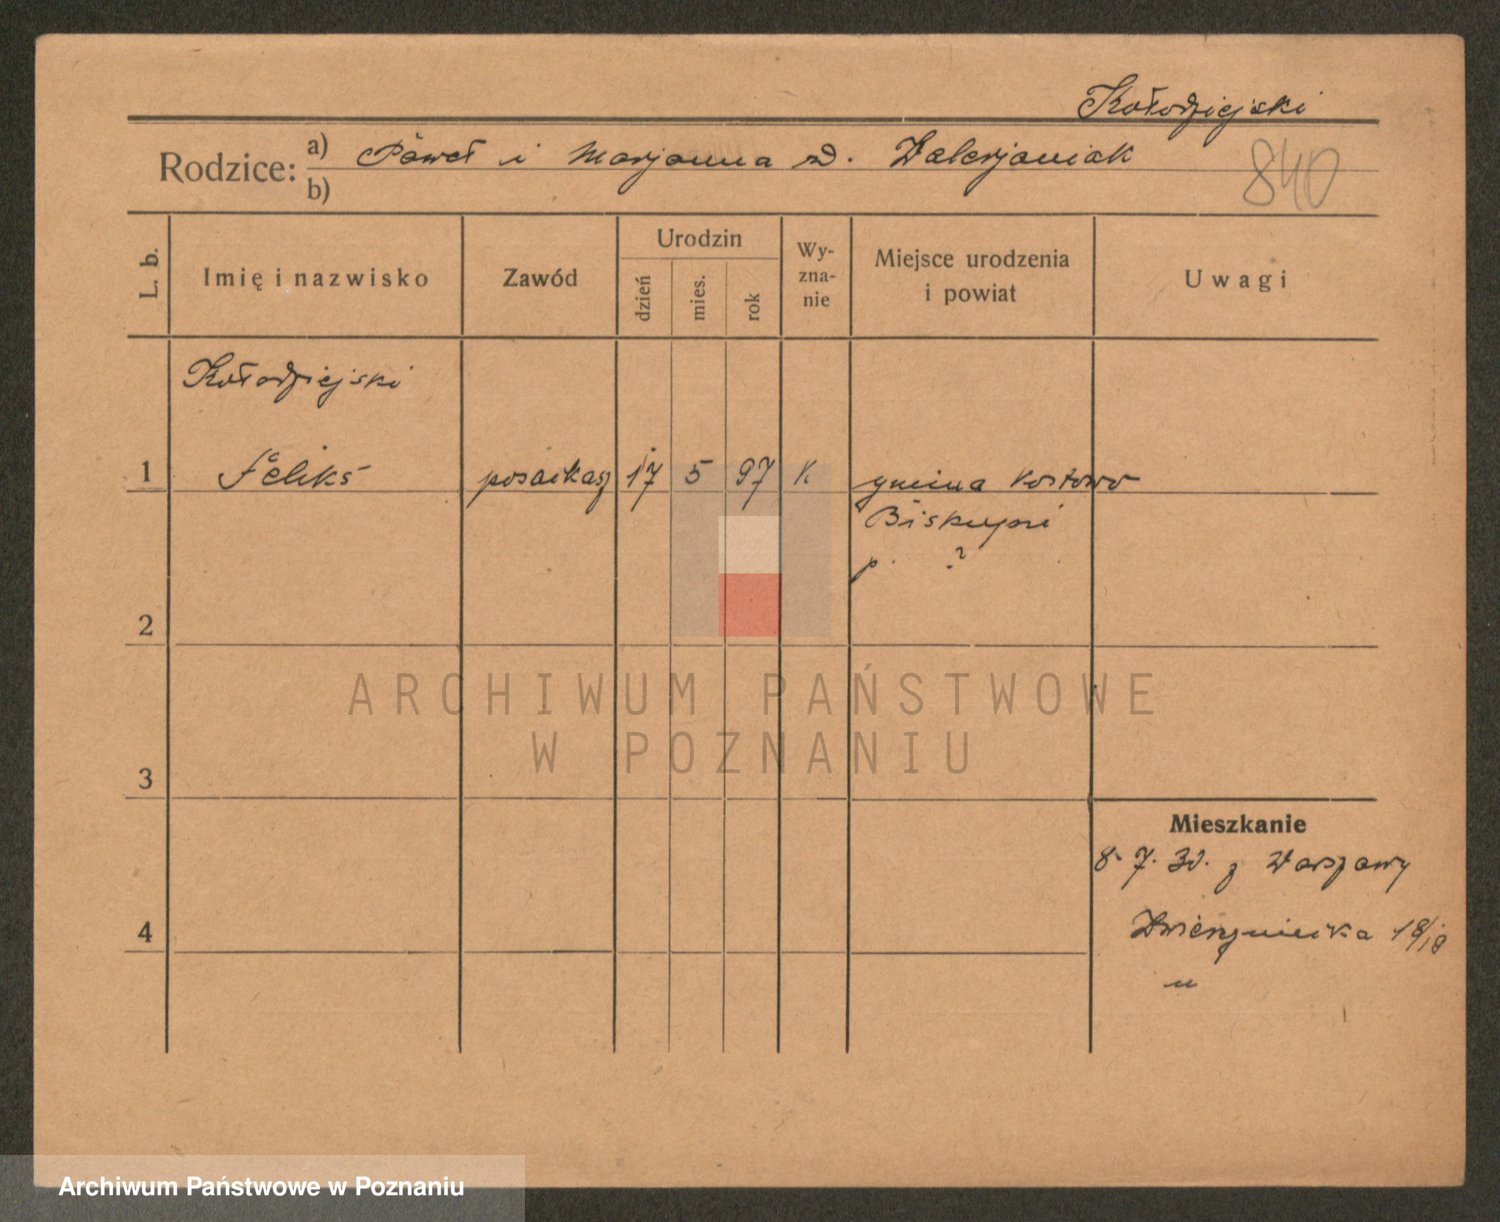 Kołodziejski
Rodzice: a) Paweł i Marjanna zd. Walerjaniak
b)
840
L. b.
Imię i nazwisko
Zawód
Urodzin
dzień
mies.
rok
Wy-
zna-
nie
Miejsce urodzenia
i powiat
Uwagi
Kołodziejski
1 Feliks 17 5 97 K gmina Kostowo
Biskupni
p. ?
2
ARCHIWUM PAŃSTWOWE
W POZNANIU
3
Mieszkanie
8. 7. 30. z Warszawy
4
Zwierzyniecka 18/18
u
Archiwum Państwowe w Poznaniu